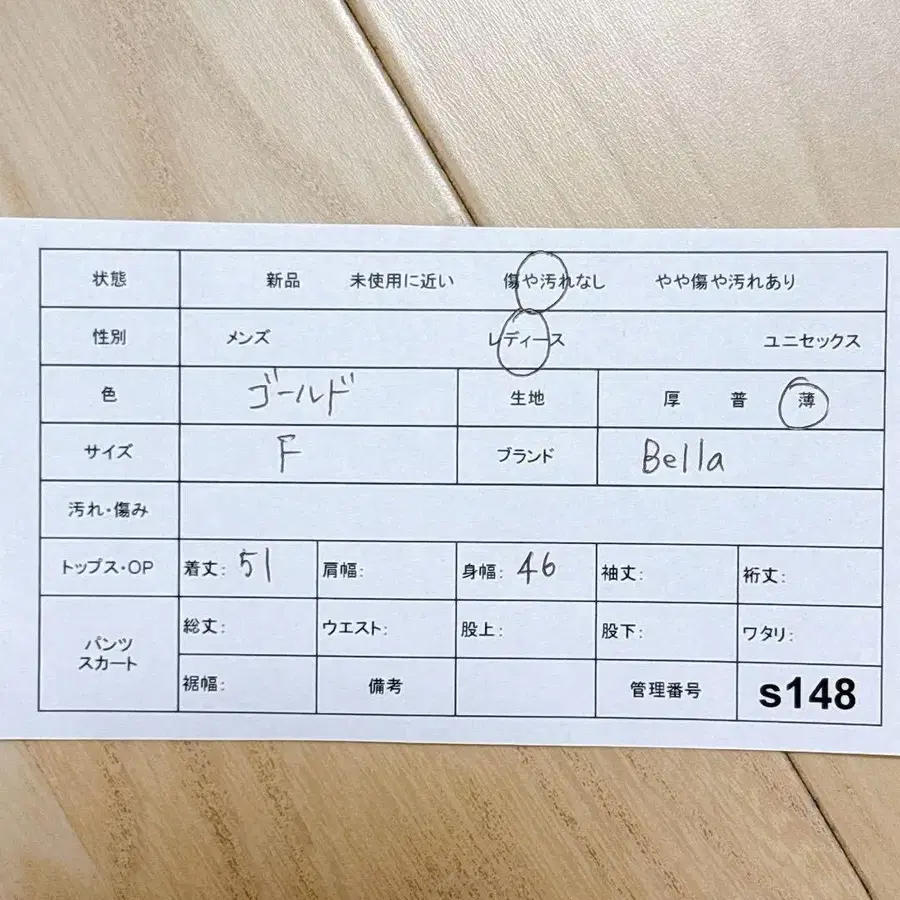 状態 新品 未使用に近い 傷や汚れなし やや傷や汚れあり
性別 メンズ レディース ユニセックス
色 ゴールド 生地 厚 普 薄
サイズ F ブランド Bella
汚れ・傷み
トップス・OP 着丈: 51 肩幅: 身幅: 46 袖丈: 裄丈:
パンツ
スカート
総丈: ウエスト: 股上: 股下: ワタリ:
裾幅: 備考 管理番号 s148